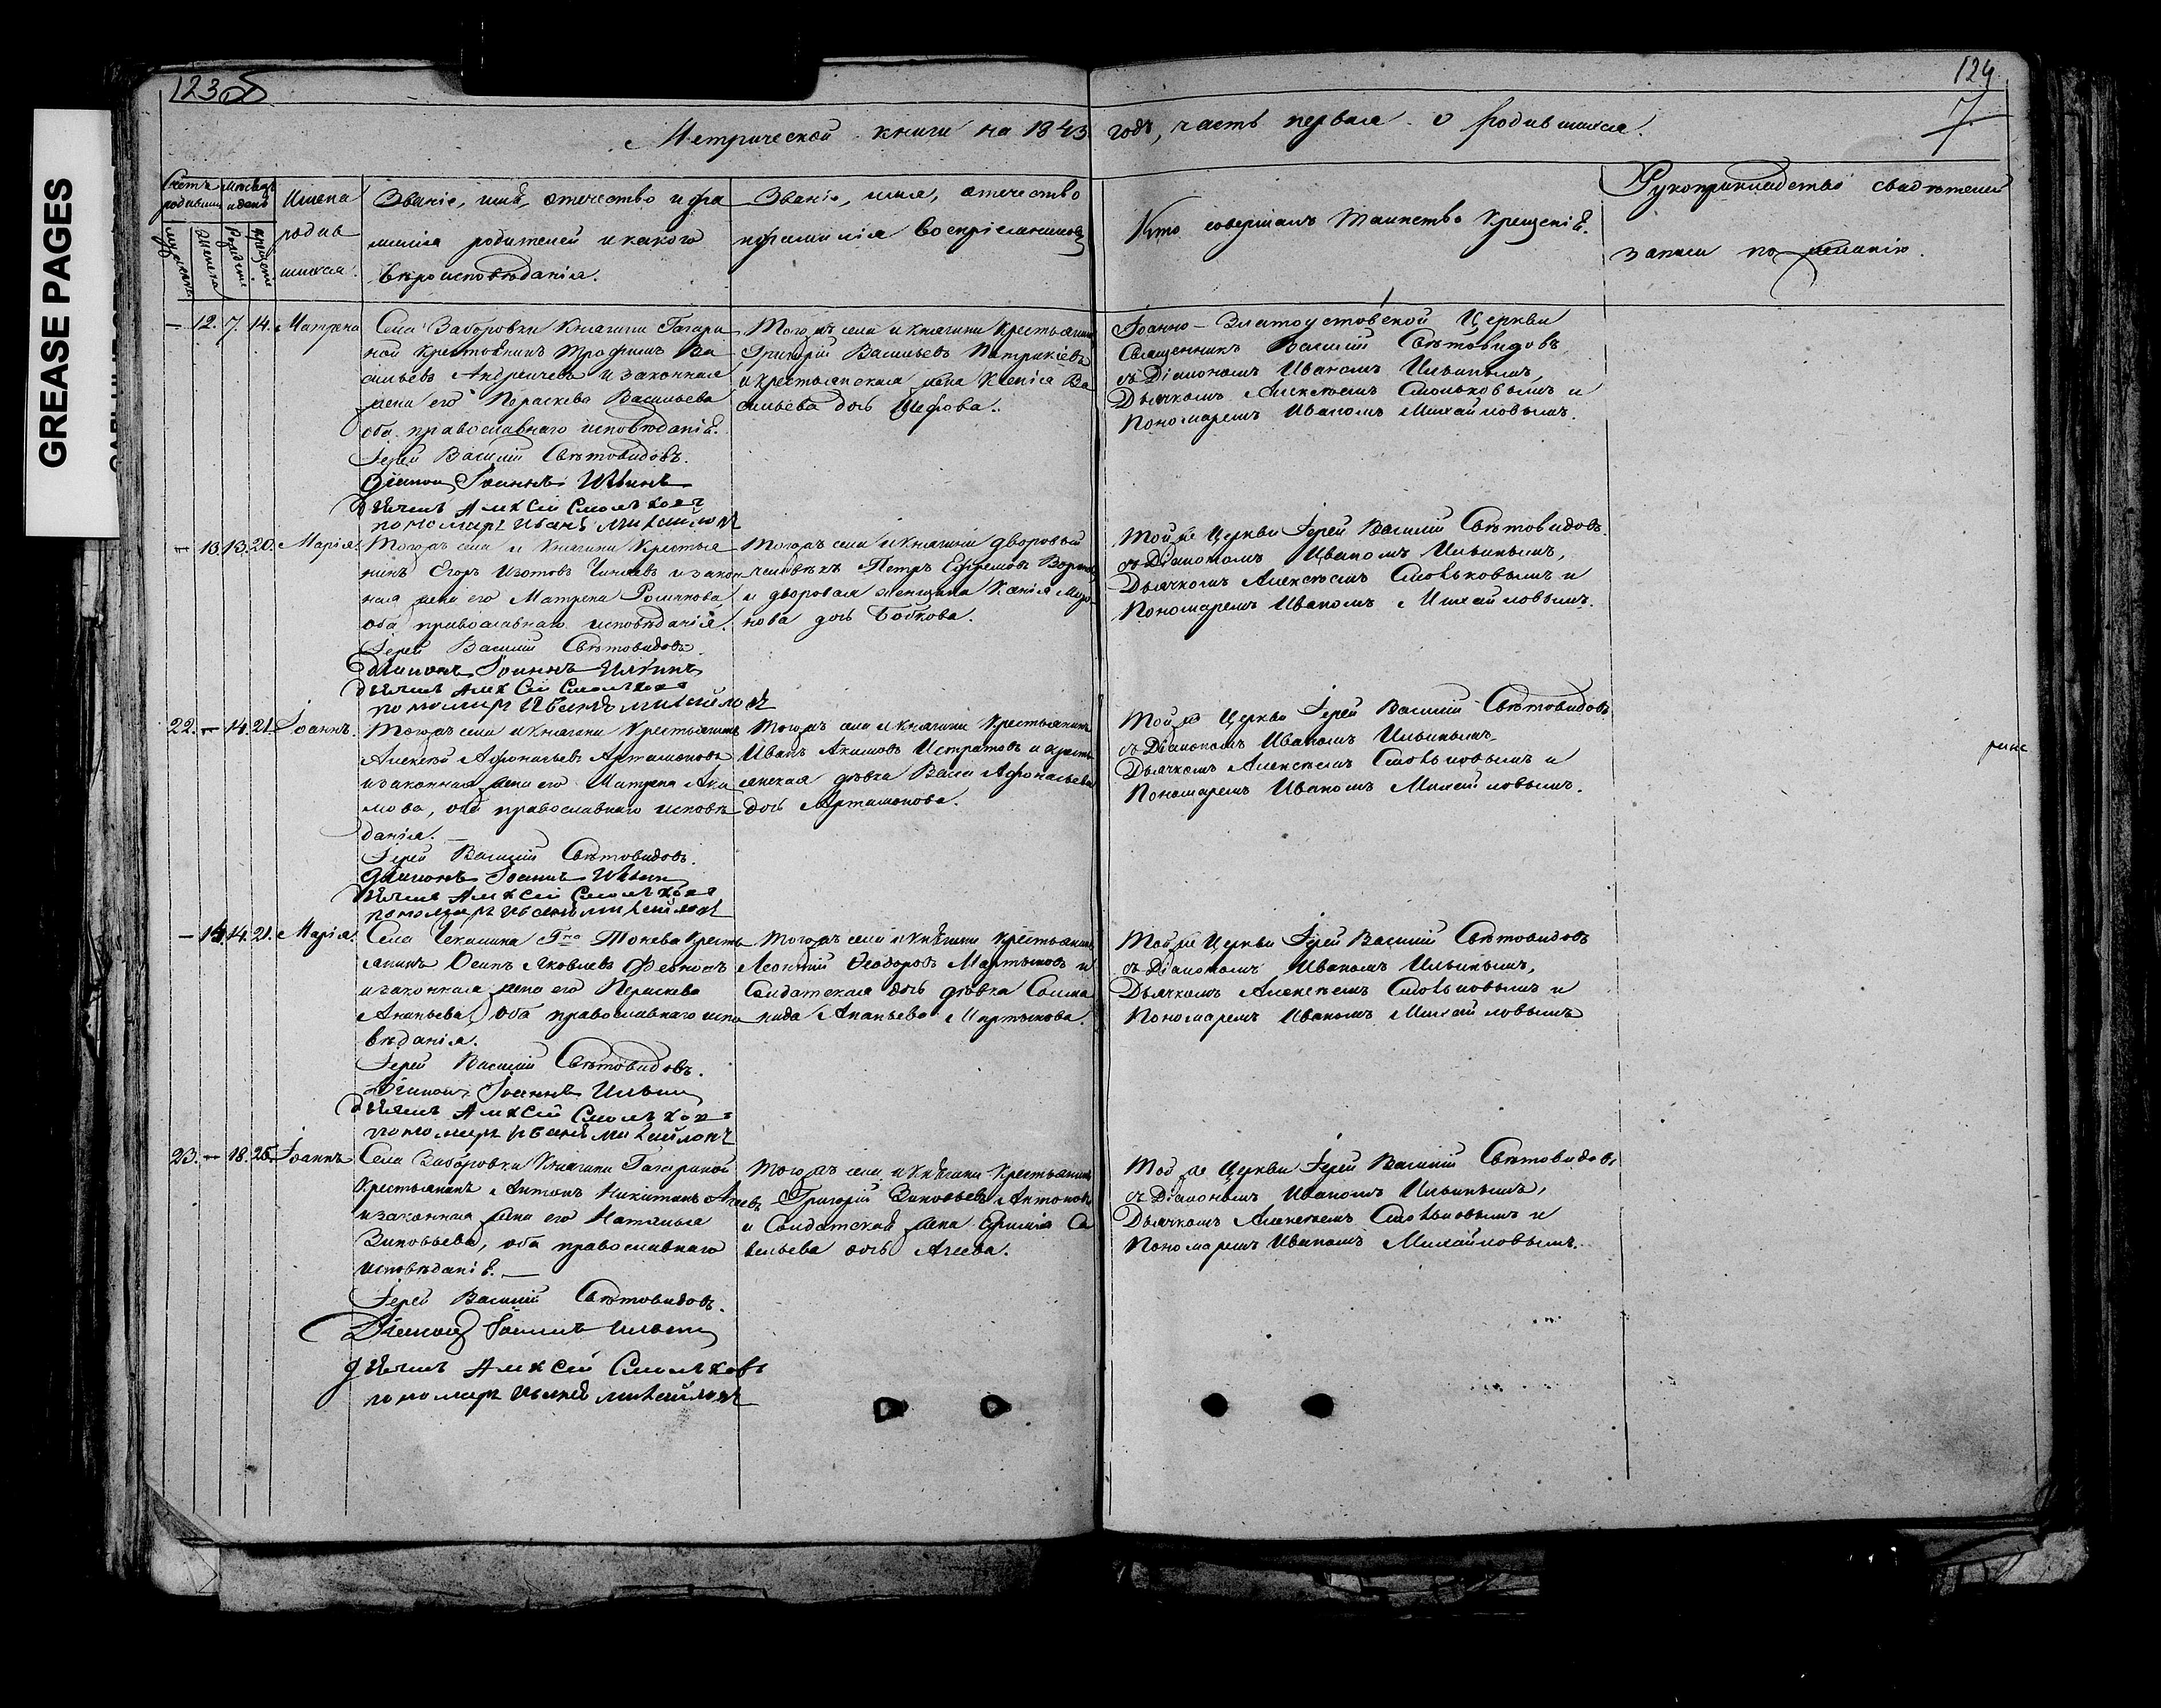 GREASE PAGES
123об
124
7
Метрической книги на 1843 годъ, часть первая о родившихся.
Счетъ родившихся
Мѣсяцъ и день
Имена родив
шихся.
мужеска
женска
рожденія
крещенія
Званіе, имя, отечество и фа
милія родителей и какого
вѣроисповѣданія.
Званіе, имя, отечество
и фамилія воспріемниковъ
Кто совершалъ таинство крещенія.
Рукоприкладство свидѣтелей
записи по желанію.
— 12. 7. 14. Матрена
Села Заборовки Княгини Гагари
ной крестьянинъ Трофимъ Ва
сильевъ Андреичевъ и законная
жена его Параскева Васильева
оба православнаго исповѣданія.
Іерей Василій Свѣтовидовъ.
Діаконъ Іоаннъ Ильинъ
дьячекъ Алексей Смольковъ
пономарь Иванъ Михайловъ
Тогожъ села и княгини крестьянинъ
Григорій Васильевъ Патрикіевъ
и крестьянская жена Ксенія Ва
сильева дочь
Іоанно-Златоустовской Церкви
Священникъ Василій Свѣтовидовъ
съ Діакономъ Иваномъ Ильинымъ,
Дьячкомъ Алексѣемъ Смольковымъ и
Пономаремъ Иваномъ Михайловымъ.
— 13. 13. 20. Марія.
Тогожъ села и Княгини Крестья
нинъ Егоръ Изотовъ и закон
ная жена его Матрена Романова
оба православнаго исповѣданія.
Іерей Василій Свѣтовидовъ.
Діаконъ Іоаннъ Ильинъ
дьячекъ Алексей Смольковъ
пономарь Иванъ Михайловъ
Тогожъ села и княгини дворовый
человѣкъ Петръ Ефремовъ
и дворовая женщина Ксенія Миро
нова дочь Бобкова.
Той же Церкви Іерей Василій Свѣтовидовъ
съ Діакономъ Иваномъ Ильинымъ,
Дьячкомъ Алексѣемъ Смольковымъ и
Пономаремъ Иваномъ Михайловымъ.
22. — 14. 21. Іоаннъ.
Тогожъ села и Княгини Крестьянинъ
Алексѣй Афонасьевъ Артамоновъ
и законная жена его Матрена Аки
мова, оба православнаго исповѣ
данія.
Іерей Василій Свѣтовидовъ.
Діаконъ Іоаннъ Ильинъ
дьячекъ Алексей Смольковъ
пономарь Иванъ Михайловъ
Тогожъ села и Княгини Крестьянинъ
Иванъ Акимовъ Истратовъ и кресть
янская дѣвка Васса Афонасьева
дочь Артамонова.
Той же Церкви Іерей Василій Свѣтовидовъ
съ Діакономъ Иваномъ Ильинымъ
Дьячкомъ Алексѣемъ Смольковымъ и
Пономаремъ Иваномъ Михайловымъ.
— 14. 14. 21. Марія.
Села Чекалина Гна Тонева Кресть
янинъ Осипъ Яковлевъ
и законная жена его Параскева
Ананьева, оба православнаго испо
вѣданія.
Іерей Василій Свѣтовидовъ.
Діаконъ Іоаннъ Ильинъ
дьячекъ Алексей Смольковъ
пономарь Иванъ Михайловъ
Тогожъ села и Княгини крестьянинъ
Леонтій Ѳеодоровъ Мартыновъ и
Солдатская дочь дѣвка Соломо
нида Ананьева Мартынова.
Той же Церкви Іерей Василій Свѣтовидовъ
съ Діакономъ Иваномъ Ильинымъ,
Дьячкомъ Алексѣемъ Смольковымъ и
Пономаремъ Иваномъ Михайловымъ
23. — 18. 25. Іоаннъ
Села Заборовки Княгини Гагариной
Крестьянинъ Антонъ Никитинъ Агеевъ
и законная жена его Наталья
Зиновьева, оба православнаго
исповѣданія. —
Іерей Василій Свѣтовидовъ.
Діаконъ Іоаннъ Ильинъ
дьячекъ Алексей Смольковъ
пономарь Иванъ Михайловъ
Тогожъ села и Княгини Крестьянинъ
Григорій Зиновьевъ Антоновъ
и Солдатская жена Ефимія Са
вельева дочь Агеева.
Той же Церкви Іерей Василій Свѣтовидовъ
съ Діакономъ Иваномъ Ильинымъ,
Дьячкомъ Алексѣемъ Смольковымъ и
Пономаремъ Иваномъ Михайловымъ.